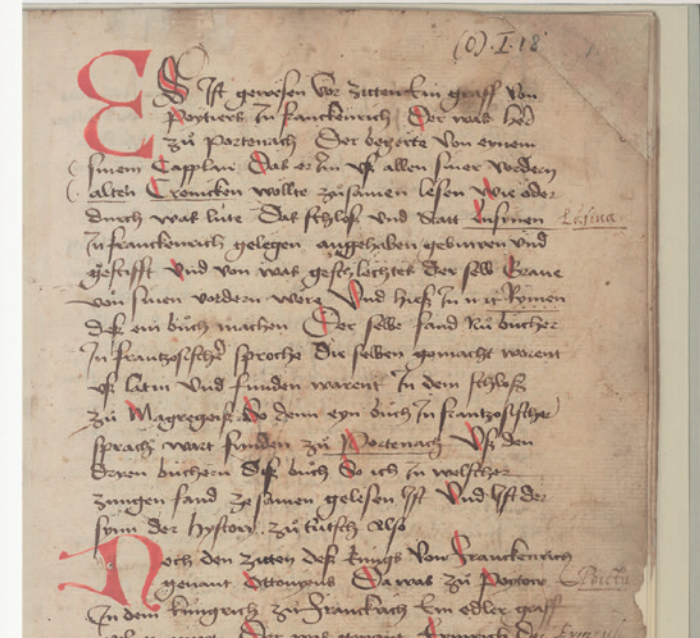 (O).I.18
ES Ist gewesen vor zitten Ein graff von
poytiers In franckenrich Der was her
zů portenach Der begerte von eynem
sinem Capplan Das er Im vß allen siner vordern
alten Cronicken wollte zůsamen lesen wie oder
durch was lute Das schloß vnd Statt
In franckenrich gelegen angehaben geburren vnd
gestifft vnd von was geschlechtes Der selb Graue
von sinen vordern were Vnd hieß In Rymen
deß ein bůch machen Der selbe fand bücher
In frantzosischer sproche Die selben gemacht warent
vß latin Vnd funden warent In dem schloß
zů Magregoiß So denn eyn bůch In frantzosischer
sprach wart funden zů Portenach Vß den
dryen büchern diß bůch So ich In welscher
zungen fand ze samen gelesen ist Vnd ist der
synn der hystory zů tütsch also
Noch den zitten deß kunigs von Franckenrich
genant Ottouyens Da was zů poytow
In dem kungrich zů Franckrich Ein edler graff
Der was genant